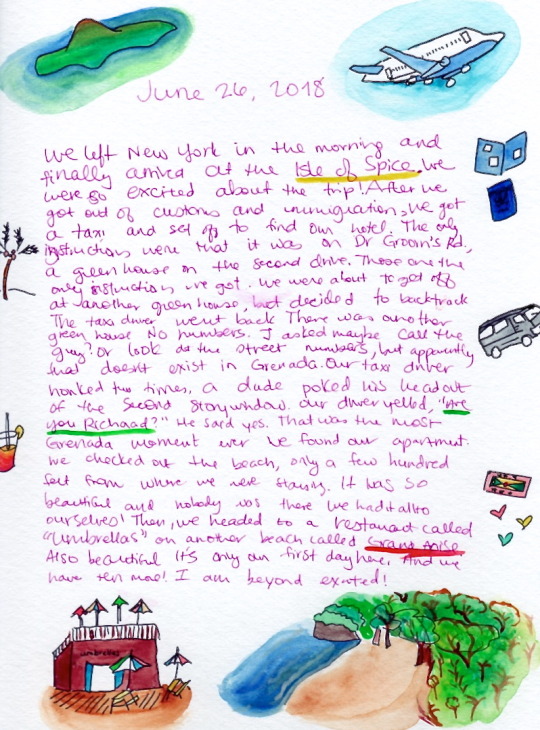 June 26, 2018
We left New York in the morning and
finally arrived at the Isle of Spice. We
were so excited about the trip! After we
got out of customs and immigration, we got
a taxi and set off to find our hotel. The only
instructions were that it was on Dr Groom's Rd,
a green house on the second drive. Those are the
only instructions we got. We were about to get off
at another green house, but decided to backtrack
The taxi driver went back There was another
green house No numbers. I asked maybe call the
guy? Or look at the street numbers, but apparently
that doesnt exist in Grenada. Our taxi driver
honked two times, a dude poked his head out
of the second story window. Our driver yelled, "Are
you Richaad?" He said yes. That was the most
Grenada moment ever We found our apartment.
We checked out the beach, only a few hundred
feet from where we were staying. It was so
beautiful and nobody was there we had it all to
ourselves! Then, we headed to a restaurant called
"Umbrellas" on another beach called Grand Anise
Also beautiful It's only our first day here. And we
have ten more! I am beyond excited!
umbrellas